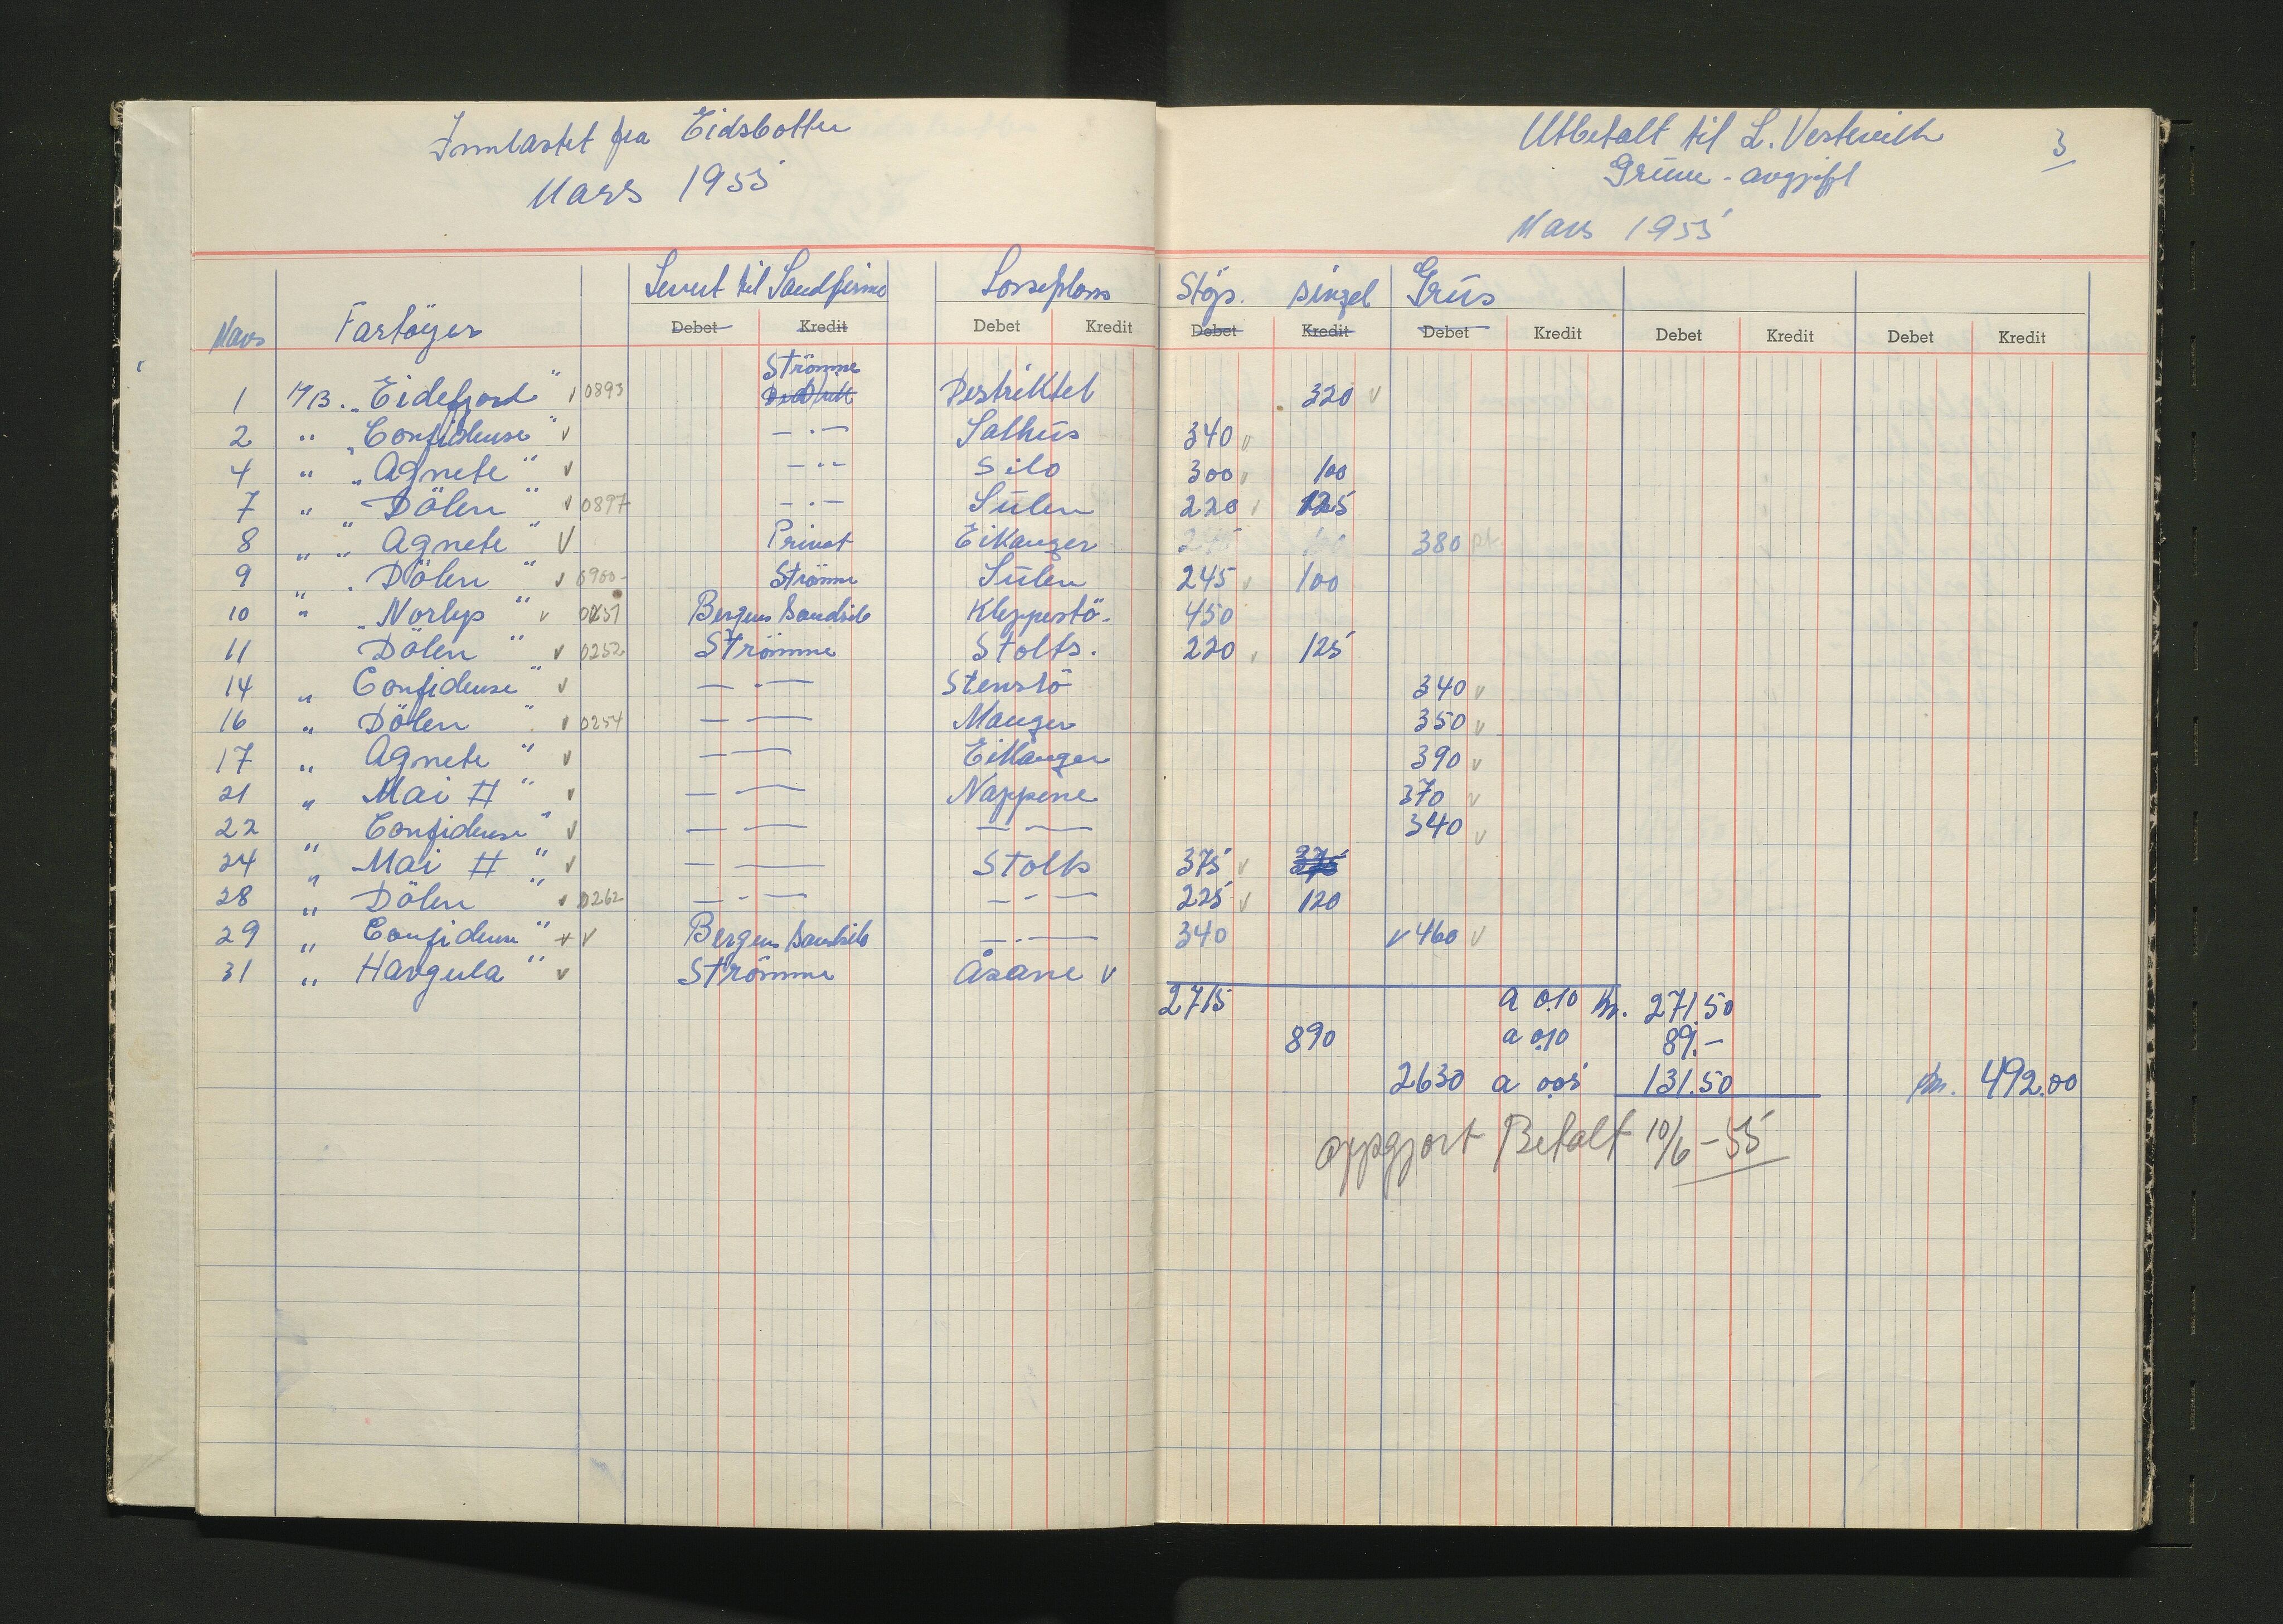 Innlastet fra Eidsbotten
Mars 1955
Mars Fartöyer Levert til Sandfirma Losseplass
Debet Kredit Debet Kredit
Strömme
1 M/B. „Eidefjord" v 0893 Destriktet
2 " „Confidense" v — . — Salhus
4 " „Agnete" v — .. — Silo
7 " Dölen " v 0897 — . — Sulen
8 " „ Agnete " v Privat Eikanger
9 " Dölen " v 0900 Strömme Sulen
10 " „Norlys " v 0251 Bergens Sandsilo Kleppestö.
11 Dölen " v 0252 Strömme Stolts.
14 " Confidense" v — . — Stenstö
16 " Dölen " v 0254 — — Manger
17 " Agnete " v — — Eikanger
21 " Mai II " v — — Nappene
22 " Confidense" v — — — —
24 " Mai II " v — — Stolts
28 " Dölen " v 0262 — - — — - —
29 " Confidense" v v Bergens Sandsilo — . —
31 " Havgula " v Strömme Åsane v
Utbetalt til L. Vestrevik 3
Grunn-avgift
Mars 1955
Stöps. singel Grus
Debet Kredit Debet Kredit Debet Kredit Debet Kredit
320 v
340 v
300 v 100
220 v 125
380 pt.
245 v 100
450
220 v 125
340 v
350 v
390 v
370 v
340 v
375 v 375
225 v 120
340 v 460 v
2715 a 0.10 kr. 271.50
890 a 0.10 89.-
2630 a 0.05 131.50 kr. 492.00
oppgjort Betalt 10/6-55